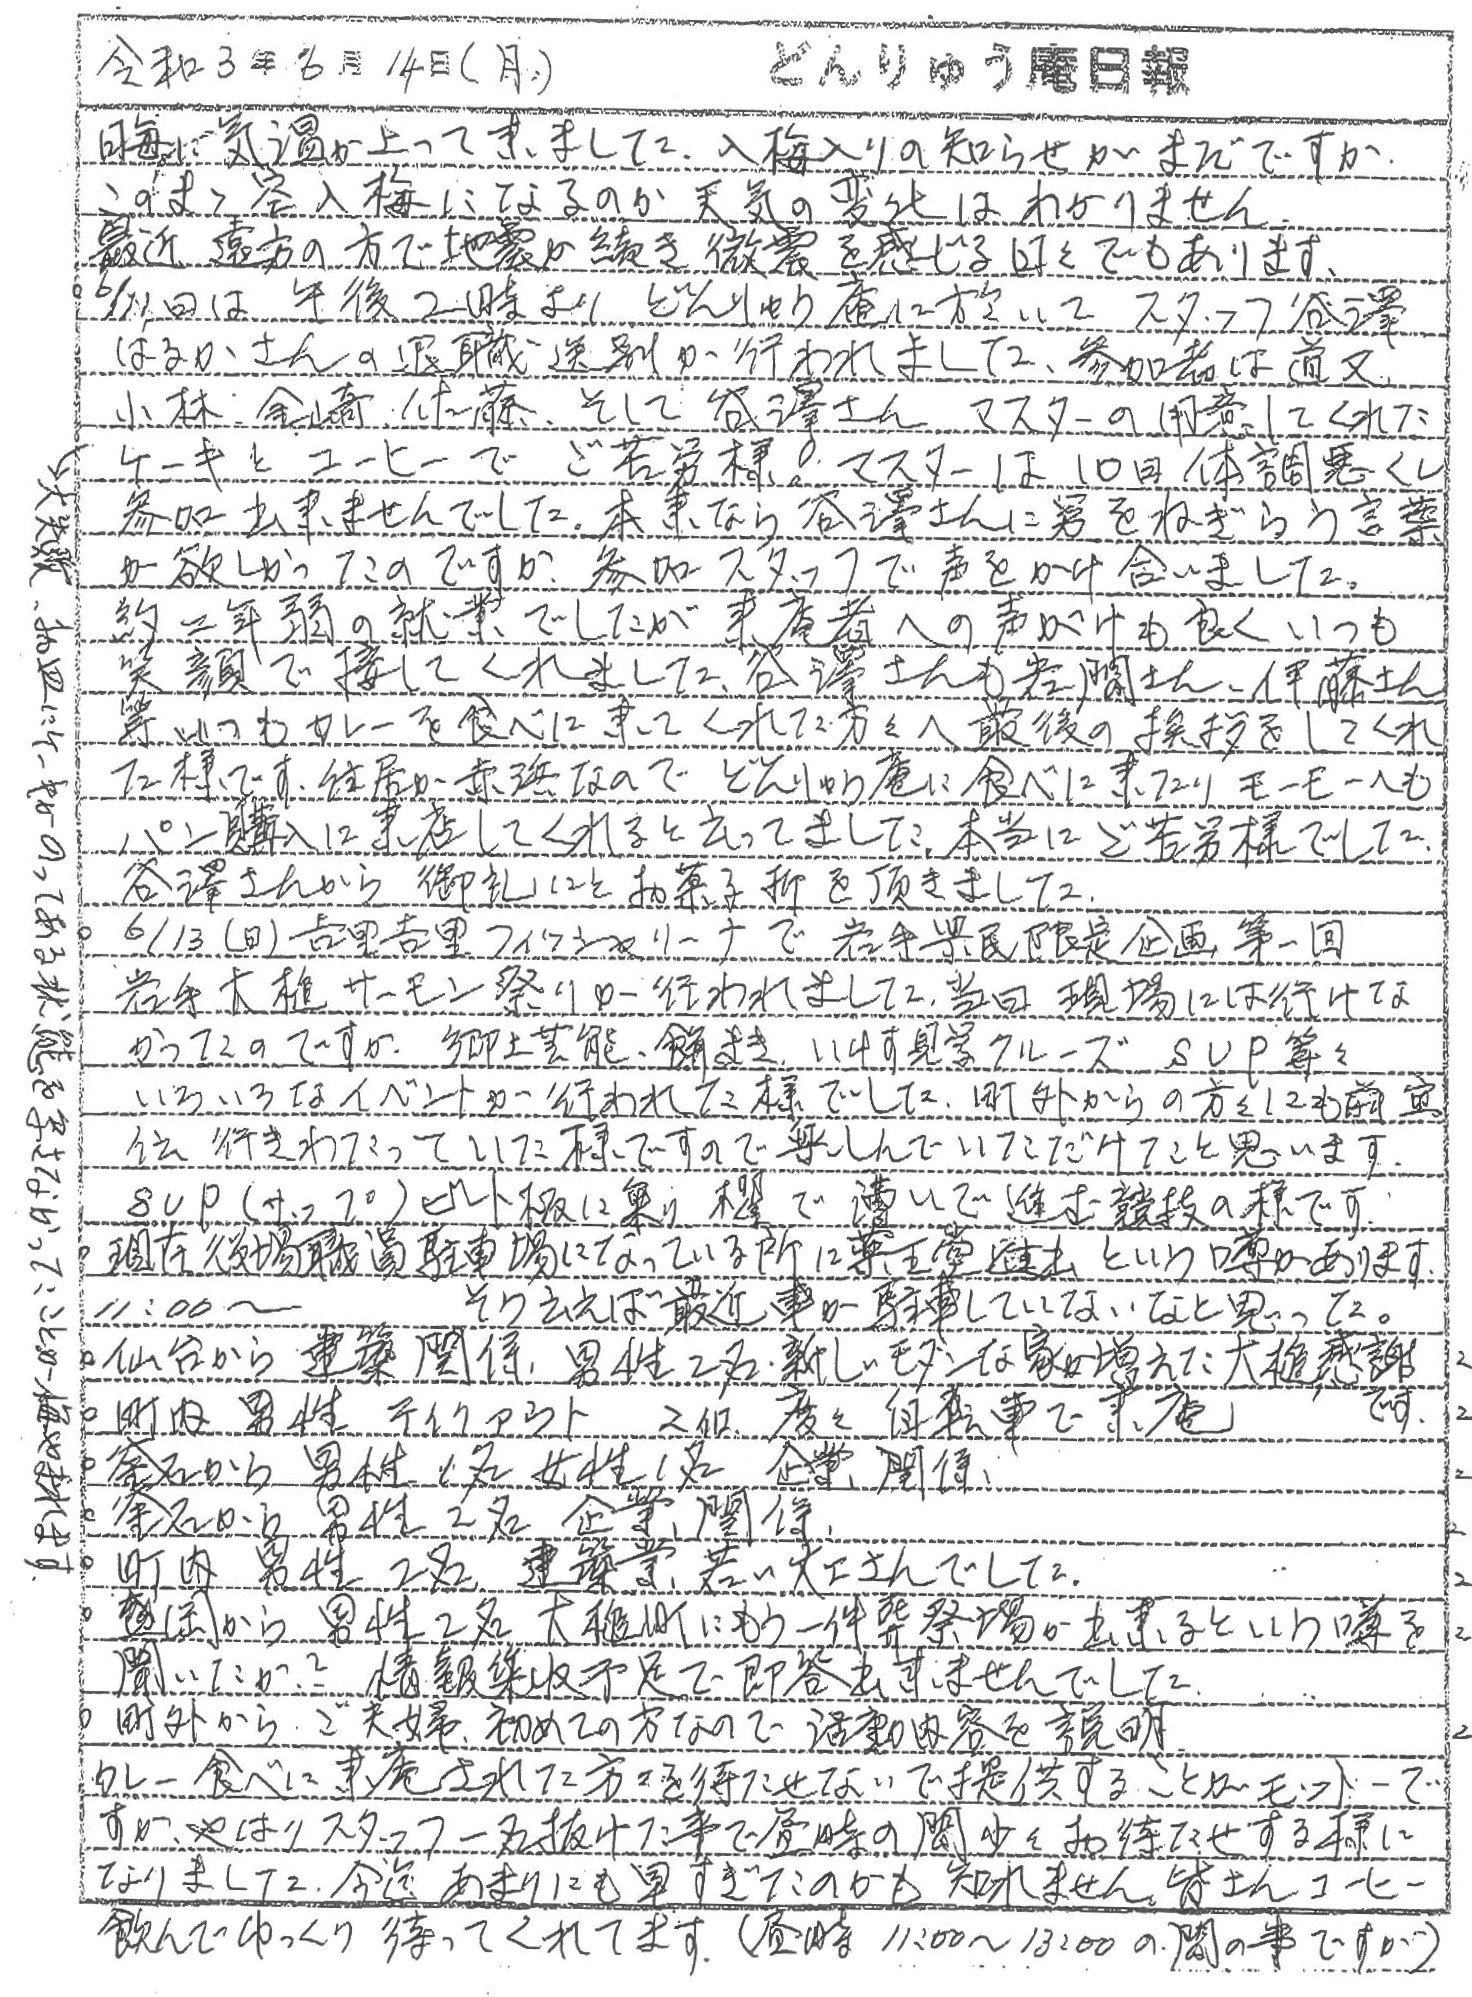 令和3年6月14日(月) どんりゅう庵日報
毎に気温が上って来ました。入梅入りの知らせがまだですが
このまゝ空入梅になるのか天気の変化はわかりません。
最近遠方の方で地震が続き微震を感じる時々でもあります。
6/11日は午後2時よりどんりゅう庵に於いてスタッフ谷澤
はるかさんの退職送別が行われました、参加者は道又、
小林、金崎、佐藤、そして谷澤さん マスターの用意してくれた
ケーキとコーヒーでご苦労様。マスターは10日体調悪くし
参加出来ませんでした。本来なら谷澤さんに労をねぎらう言葉
が欲しかったのですが、参加スタッフで声をかけ合いました。
約二年弱の就業でしたが来庵者への声がけも良くいつも
笑顔で接してくれました、谷澤さんも岩間さん、伊藤さん
等いつもカレーを食べに来てくれた方々へ最後の挨拶をしてくれ
た様です。住居が赤浜なのでどんりゅう庵に食べに来たりモーモーへも
パン購入に来店してくれると云ってました。本当にご苦労様でした。
谷澤さんから御礼にとお菓子折を頂きました。
6/13(日)吉里吉里フィッシャリーナで岩手県民限定企画第一回
岩手大槌サーモン祭りが行われました。当日現場には行けな
かったのですが、郷土芸能、餅まき、いけす見学クルーズ SUP等々
いろいろなイベントが行われた様でした。町外からの方々にも前宣
伝行きわたっていた様ですので楽しんでいただけたと思います。
SUP(サップ)ビート板に乗り櫂で漕いで進む競技の様です。
現在役場職員駐車場になっている所に薬王堂進出という噂があります。
11:00〜 そう云えば最近車が駐車していないなと思った。
仙台から建築関係、男性2名、新しいモダンな家が増えた大槌感謝です。 2
町内男性 テイクアウト 2ヶ、度々自転車で来庵 2
釜石から男性1名女性1名 企業関係、 2
釜石から男性2名 企業関係、 2
町内男性2名、建築業、若い大工さんでした。 2
盛岡から男性2名 大槌町にもう一件葬祭場が出来るという噂を 2
聞いたが？ 情報集収不足で即答出来ませんでした。
町外からご夫婦、初めての方なので活動内容を説明 2
カレー食べに来庵された方々を待たせないで提供することがモットーで
すが、やはりスタッフ一名抜けた事で昼時の間少々お待たせする様に
なりました。今迄あまりにも早すぎたのかも知れません。皆さんコーヒー
飲んでゆっくり待ってくれてます。(昼時11:00〜13:00の間の事ですが)
大失敗、お皿に のってある状態を写さなかったことが悔やまれます。